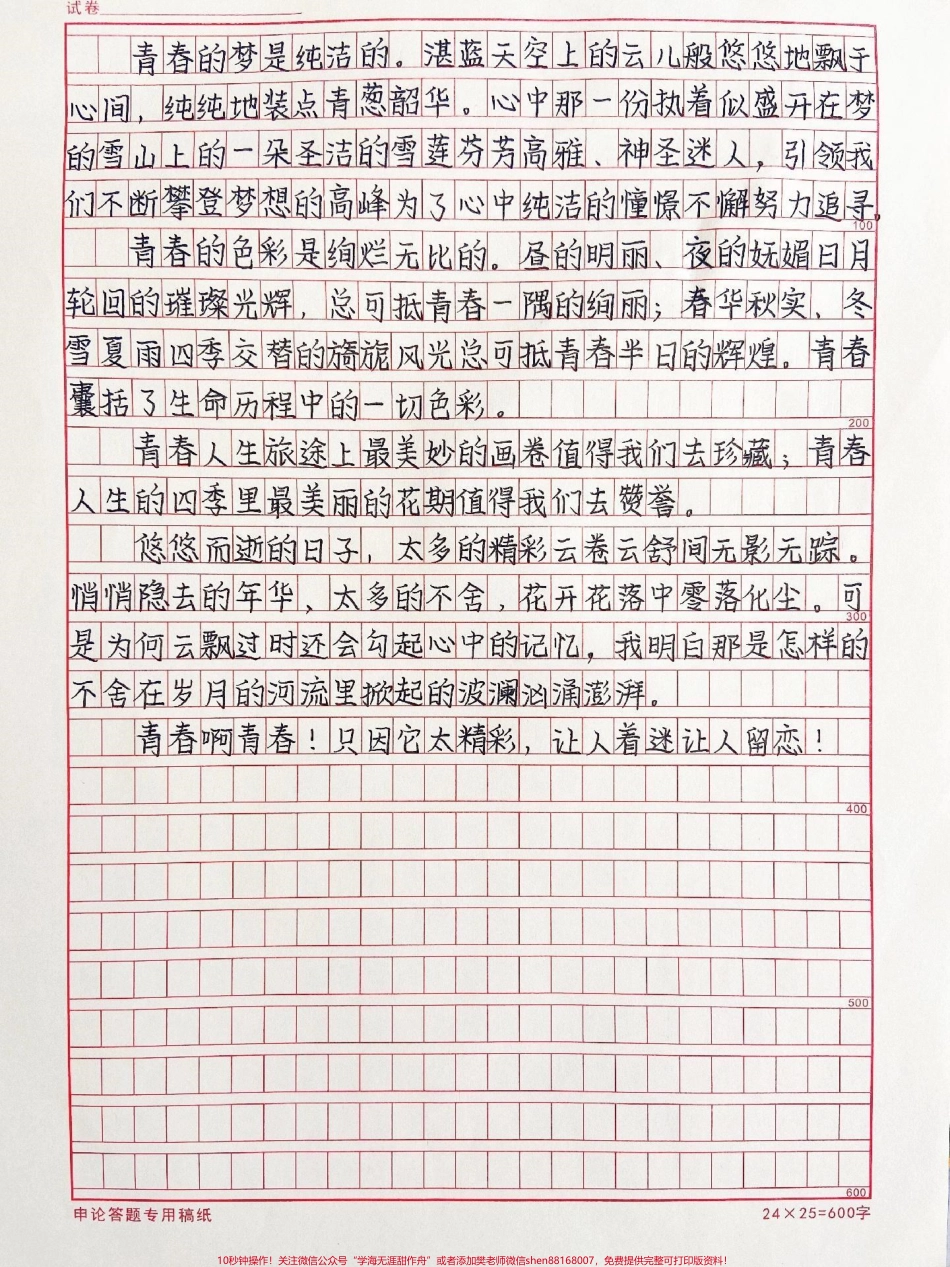 试卷
青春的梦是纯洁的。湛蓝天空上的云儿般悠悠地飘于
心间，纯纯地装点青葱韶华。心中那一份执着似盛开在梦
的雪山上的一朵圣洁的雪莲芬芳高雅、神圣迷人，引领我
们不断攀登梦想的高峰为了心中纯洁的憧憬不懈努力追寻。
100
青春的色彩是绚烂无比的。昼的明丽、夜的妩媚日月
轮回的璀璨光辉，总可抵青春一隅的绚丽；春华秋实、冬
雪夏雨四季交替的旖旎风光总可抵青春半日的辉煌。青春
囊括了生命历程中的一切色彩。
200
青春人生旅途上最美妙的画卷值得我们去珍藏；青春
人生的四季里最美丽的花期值得我们去赞誉。
悠悠而逝的日子，太多的精彩云卷云舒间无影无踪。
悄悄隐去的年华、太多的不舍，花开花落中零落化尘。可
300
是为何云飘过时还会勾起心中的记忆，我明白那是怎样的
不舍在岁月的河流里掀起的波澜汹涌澎湃。
青春啊青春！只因它太精彩，让人着迷让人留恋！
400
500
600
申论答题专用稿纸
24×25=600字
10秒钟操作！关注微信公众号“学海无涯甜作舟”或者添加樊老师微信shen88168007，免费提供完整可打印版资料！